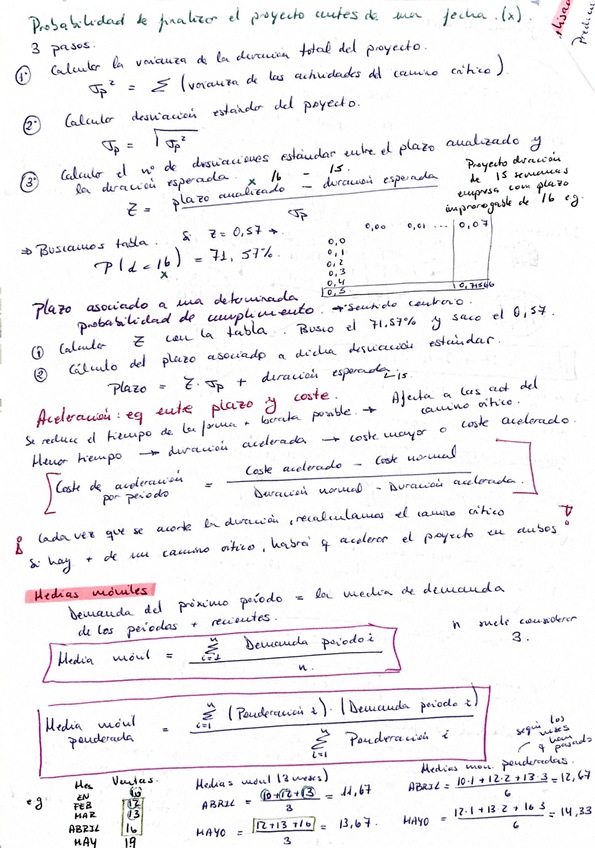 Probabilidad de finalizar el proyecto antes de una fecha (x).
3 pasos.
① Calcular la varianza de la duración total del proyecto.
σp² = Σ (varianza de las actividades del camino crítico).
② Calcular desviación estándar del proyecto.
σp = √σp²
③ Calculo el nº de desviaciones estándar entre el plazo analizado y
la duración esperada.
x 16 - 15.
Z = plazo analizado - duración esperada
σp
Proyecto duración
de 15 semanas
empresa con plazo
improrrogable de 16 eg.
⇒ Buscamos tabla. Si Z = 0,57 →
P(d<16) = 71,57%.
x
0,00 0,01 ... 0,07
0,0
0,1
0,2
0,3
0,4
0,5 0,71566
Plazo asociado a una determinada
probabilidad de cumplimiento. → Sentido contrario.
① Calcular Z con la tabla. Busco el 71,57% y saco el 0,57.
② Cálculo del plazo asociado a dicha desviación estándar.
Plazo = Z·σp + duración esperada
15
Aceleración: eq entre plazo y coste.
Se reduce el tiempo de la forma + barata posible. → Afecta a las act del
camino crítico.
Menor tiempo → duración acelerada → coste mayor o coste acelerado.
Coste de aceleración por periodo = Coste acelerado - Coste normal
Duración normal - Duración acelerada.
¡ Cada vez que se acorte la duración, recalculamos el camino crítico
Si hay + de un camino crítico, habrá q acelerar el proyecto en ambos !
Medias móviles
Demanda del próximo período = la media de demanda
de los periodos + recientes.
n suele considerar
3.
Media móvil = Σ Demanda periodo i
i=1 n
n.
Media móvil ponderada = Σ (Ponderación i)·(Demanda periodo i)
i=1 n
Σ Ponderación i
i=1 n
según los
meses
q han
pasado
eg
Mes Ventas.
EN 10
FEB 12
MAR 13
ABRIL 16
MAY 19
Medias móvil (3 meses)
ABRIL = 10+12+13 / 3 = 11,67
MAYO = 12+13+16 / 3 = 13,67.
Medias mov. ponderadas.
ABRIL = 10·1 + 12·2 + 13·3 / 6 = 12,67
MAYO = 12·1 + 13·2 + 16·3 / 6 = 14,33